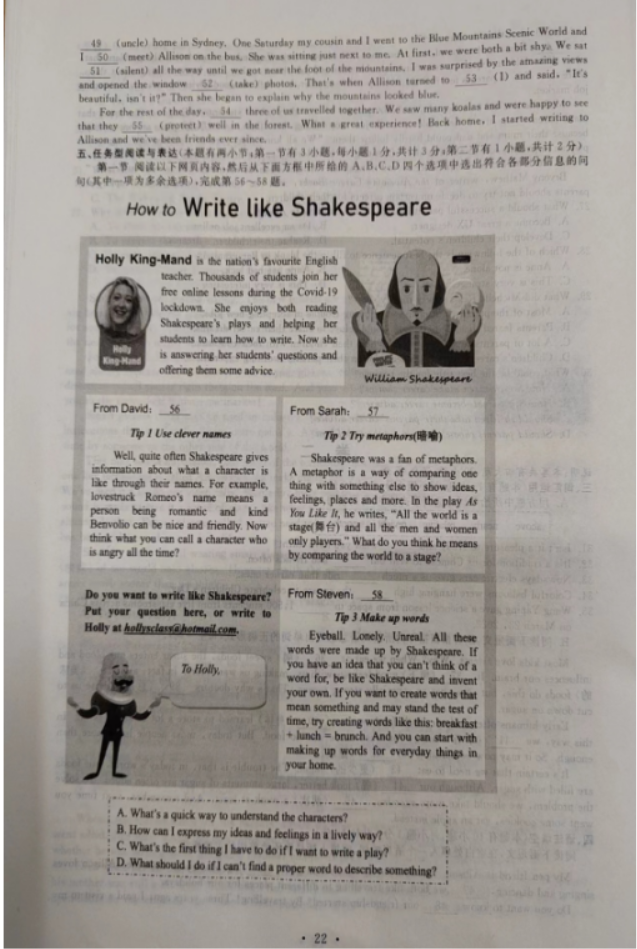 49 (uncle) home in Sydney. One Saturday my cousin and I went to the Blue Mountains Scenic World and
I 50 (meet) Allison on the bus. She was sitting just next to me. At first, we were both a bit shy. We sat
51 (silent) all the way until we got near the foot of the mountains. I was surprised by the amazing views
and opened the window 52 (take) photos. That's when Allison turned to 53 (I) and said, "It's
beautiful, isn't it?" Then she began to explain why the mountains looked blue.
For the rest of the day, 54 three of us travelled together. We saw many koalas and were happy to see
that they 55 (protect) well in the forest. What a great experience! Back home, I started writing to
Allison and we've been friends ever since.
五、任务型阅读与表达(本题有两小节,第一节有3小题,每小题1分,共计3分,第二节有1小题,共计2分)
第一节 阅读以下网页内容,然后从下面方框中所给的A、B、C、D四个选项中选出符合各部分信息的问
句(其中一项为多余选项),完成第56~58题。
How to Write like Shakespeare
Holly King-Mand is the nation's favourite English
teacher. Thousands of students join her
free online lessons during the Covid-19
lockdown. She enjoys both reading
Shakespeare's plays and helping her
students to learn how to write. Now she
is answering her students' questions and
offering them some advice.
Holly
King-Mand
William Shakespeare
From David: 56
Tip 1 Use clever names
Well, quite often Shakespeare gives
information about what a character is
like through their names. For example,
lovestruck Romeo's name means a
person being romantic and kind
Benvolio can be nice and friendly. Now
think what you can call a character who
is angry all the time?
From Sarah: 57
Tip 2 Try metaphors(暗喻)
Shakespeare was a fan of metaphors.
A metaphor is a way of comparing one
thing with something else to show ideas,
feelings, places and more. In the play As
You Like It, he writes, "All the world is a
stage(舞台) and all the men and women
only players." What do you think he means
by comparing the world to a stage?
Do you want to write like Shakespeare?
Put your question here, or write to
Holly at hollysclass@hotmail.com.
To Holly,
From Steven: 58
Tip 3 Make up words
Eyeball. Lonely. Unreal. All these
words were made up by Shakespeare. If
you have an idea that you can't think of a
word for, be like Shakespeare and invent
your own. If you want to create words that
mean something and may stand the test of
time, try creating words like this: breakfast
+ lunch = brunch. And you can start with
making up words for everyday things in
your home.
A. What's a quick way to understand the characters?
B. How can I express my ideas and feelings in a lively way?
C. What's the first thing I have to do if I want to write a play?
D. What should I do if I can't find a proper word to describe something?
· 22 ·